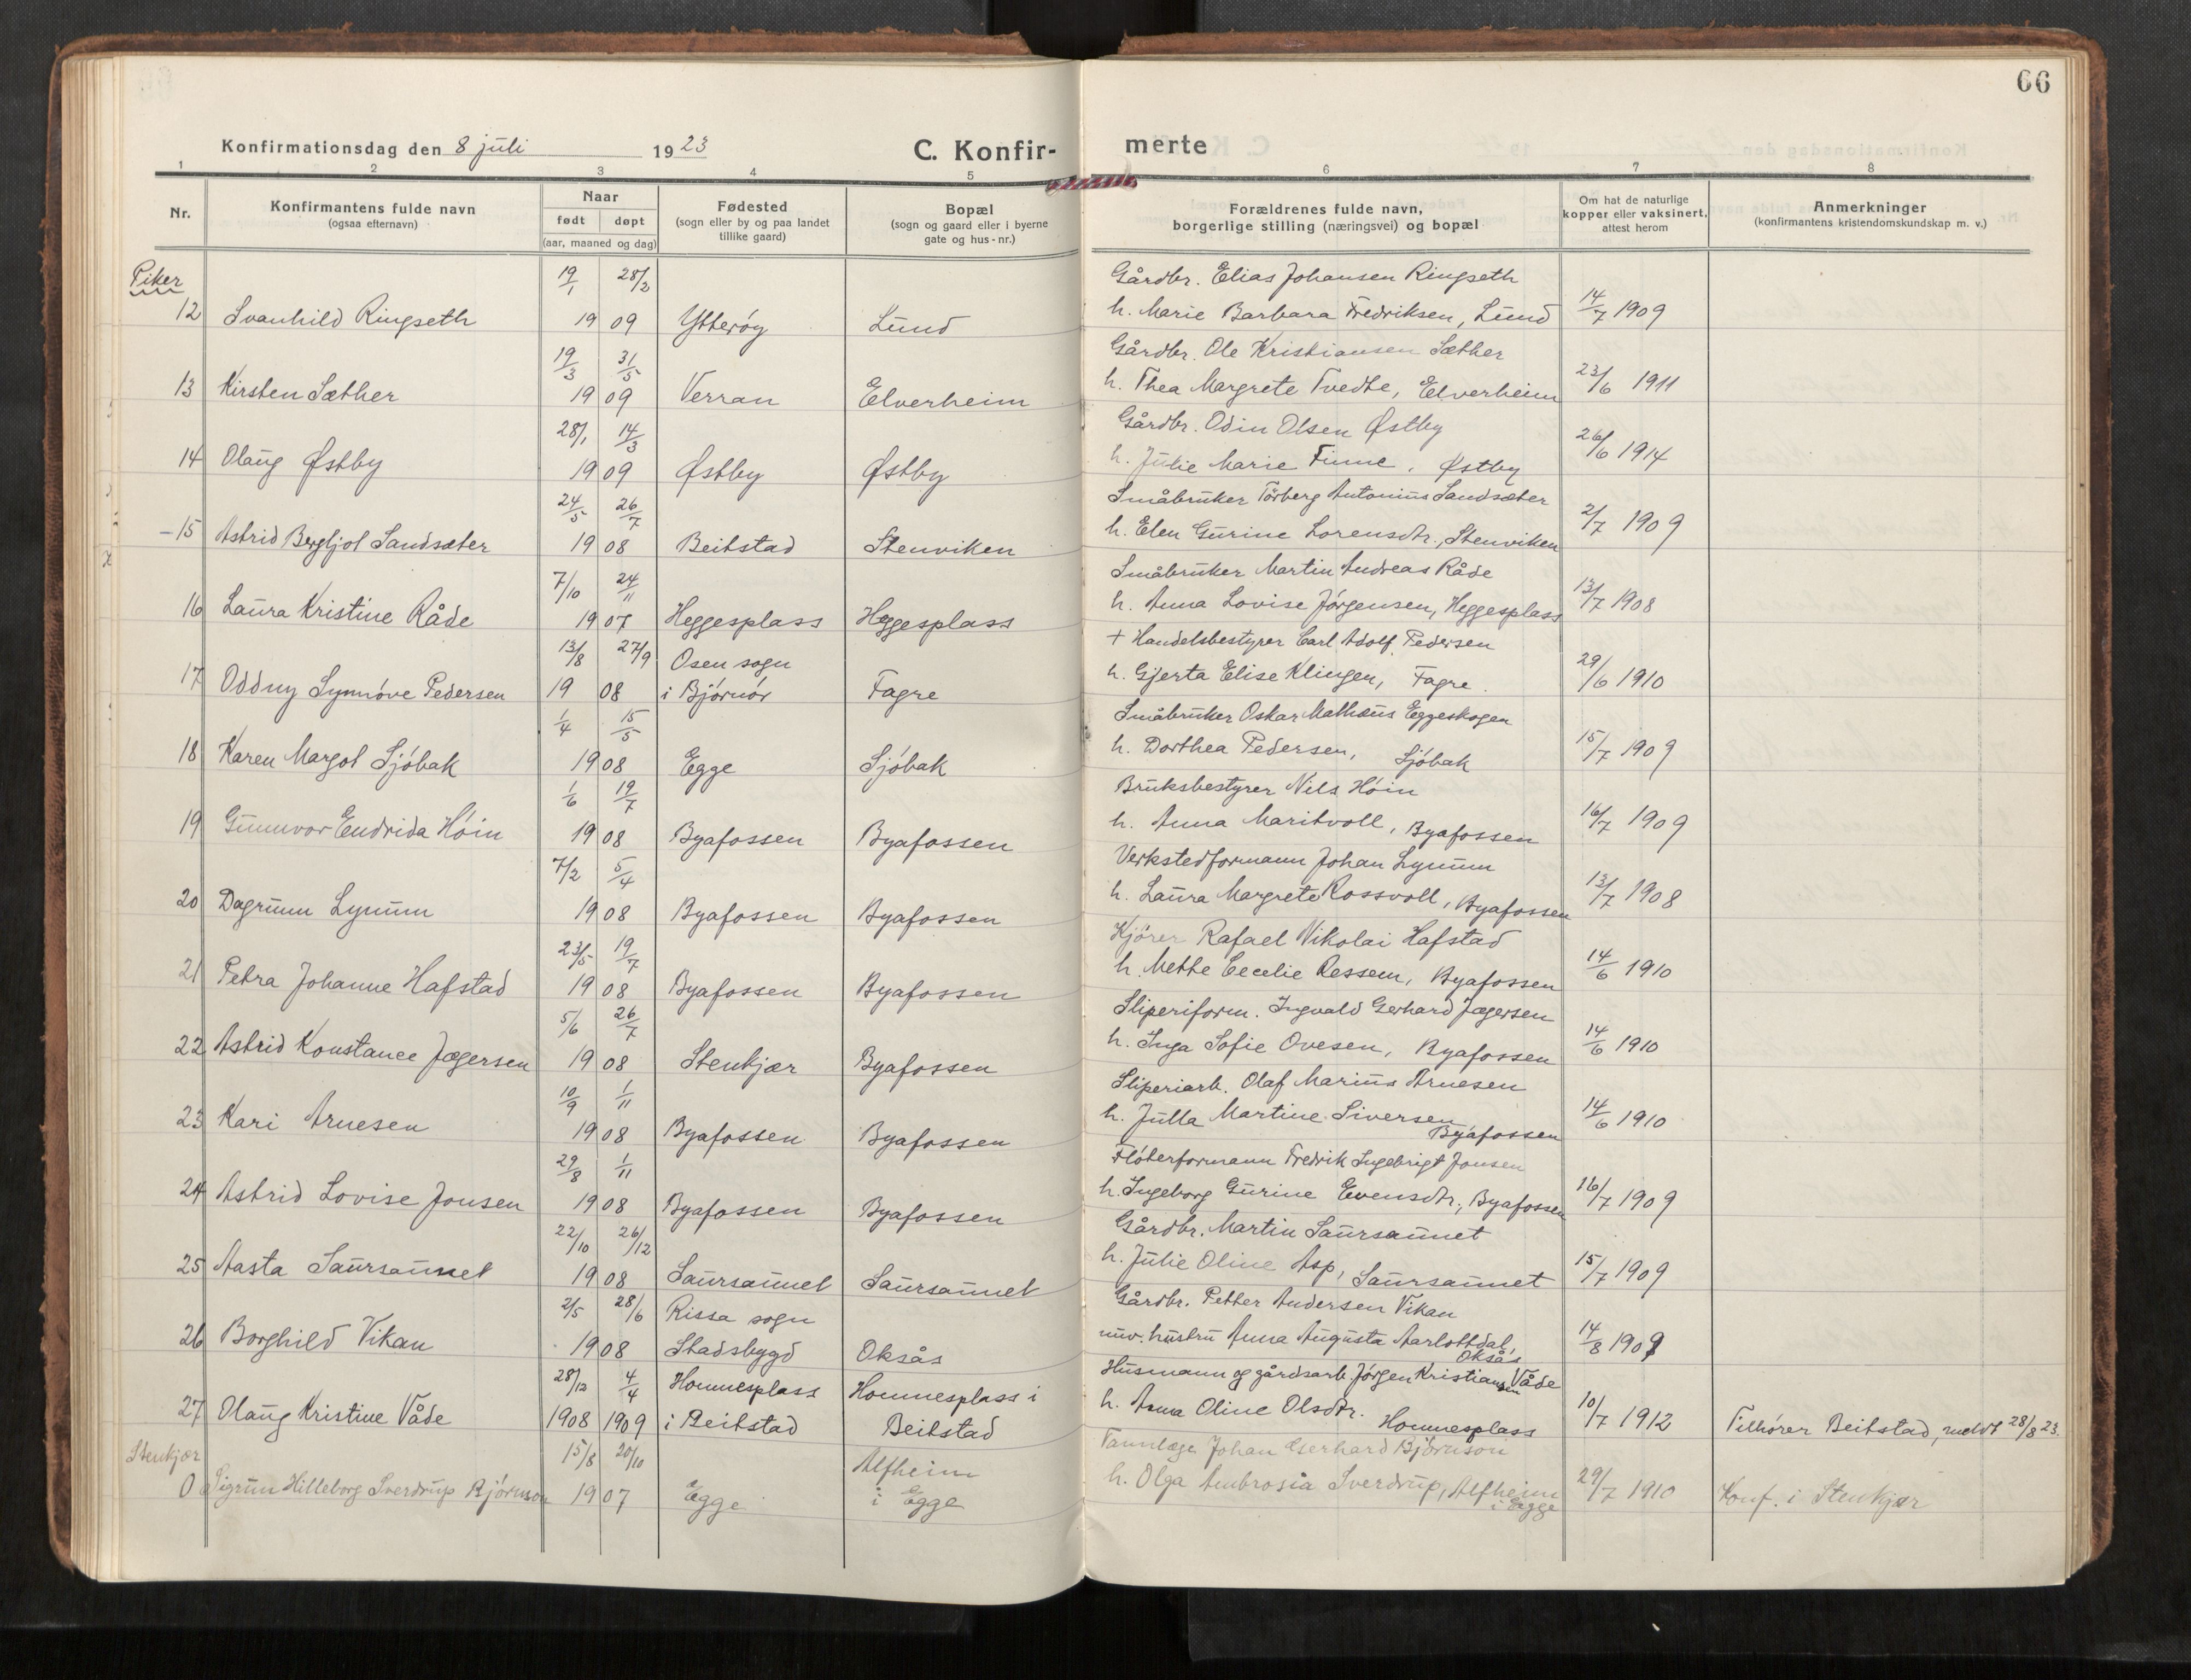 66
Konfirmationsdag den 8 juli 1923
C. Konfirmerte
1 2 3 4 5 6 7 8
Nr.
Konfirmantens fulde navn
(ogsaa efternavn)
Naar
født døpt
(aar, maaned og dag)
Fødested
(sogn eller by og paa landet
tillike gaard)
Bopæl
(sogn og gaard eller i byerne
gate og hus-nr.)
Forældrenes fulde navn,
borgerlige stilling (næringsvei) og bopæl
Om hat de naturlige
kopper eller vaksinert,
attest herom
Anmerkninger
(konfirmantens kristendomskundskap m. v.)
Piker
19/1 28/2 Gårdbr. Elias Johansen Ringseth
12 Svanhild Ringseth 19 09 Ytterøy Lund h. Marie Barbara Fredriksen, Lund 14/7 1909
19/3 31/5 Gårdbr. Ole Kristiansen Sæther
13 Kirsten Sæther 19 09 Verran Elverheim h. Thea Margrete Tvedte, Elverheim 23/6 1911
28/1 14/3 Gårdbr. Odin Olsen Østby
14 Olaug Østby 19 09 Østby Østby h. Julie Marie Finne, Østby 26/6 1914
24/5 26/7 Småbruker Torberg Antonius Sandsæter
-15 Astrid Bergljot Sandsæter 19 08 Beitstad Stenviken h. Elen Gurine Lorensdtr., Stenviken 2/7 1909
7/10 24/11 Småbruker Martin Andreas Råde
16 Laura Kristine Råde 19 07 Heggesplass Heggesplass h. Anna Lovise Jørgensen, Heggesplass 13/7 1908
13/8 27/9 Osen sogn + Handelsbestyrer Carl Adolf Pedersen
17 Oddny Synnøve Pedersen 19 08 i Bjørnør Fagre h. Gjerta Elise Klingen, Fagre. 29/6 1910
1/4 15/5 Småbruker Oskar Mathæus Eggeskogen
18 Karen Margot Sjøbak 19 08 Egge Sjøbak h. Dorthea Pedersen, Sjøbak 15/7 1909
1/6 19/7 Bruksbestyrer Nils Høin
19 Gunnvor Endrida Høin 19 08 Byafossen Byafossen h. Anna Maritvoll, Byafossen 16/7 1909
7/2 5/4 Verkstedformann Johan Lynum
20 Dagrunn Lynum 19 08 Byafossen Byafossen h. Laura Margrete Rossvoll, Byafossen 13/7 1908
23/5 19/7 Kjører Rafael Nikolai Hafstad
21 Petra Johanne Hafstad 19 08 Byafossen Byafossen h. Mette Cecelie Ressem, Byafossen 14/6 1910
5/6 26/7 Sliperiform. Ingvald Gerhard Jægersen
22 Astrid Konstance Jægersen 19 08 Stenkjær Byafossen h. Inga Sofie Ovesen, Byafossen 14/6 1910
10/9 1/11 Sliperiarb. Olaf Marius Arnesen
23 Kari Arnesen 19 08 Byafossen Byafossen h. Julla Martine Siversen Byafossen 14/6 1910
29/8 1/11 Fløterformann Fredrik Ingebrigt Jonsen
24 Astrid Lovise Jonsen 19 08 Byafossen Byafossen h. Ingeborg Gurine Evensdtr., Byafossen 16/7 1909
22/10 26/12 Gårdbr. Martin Saursaunet
25 Aasta Saursaunet 19 08 Saursaunet Saursaunet h. Julie Oline Asp, Saursaunet 15/7 1909
2/5 28/6 Rissa sogn Gårdbr. Petter Andersen Vikan
26 Borghild Vikan 19 08 Stadsbygd Oksås nuv. hustru Anna Augusta Aarlottdal, Oksås 14/8 1909
28/12 4/4 Hommesplass Hommesplass i Husmann og gårdsarb. Jørgen Kristiansen Våde
27 Olaug Kristine Våde 1908 1909 i Beitstad Beitstad h. Anna Oline Olsdtr. Hommesplass 10/7 1912 Tilhører Beitstad, meldt 28/8 23.
Stenkjær 15/8 20/10 Alfheim Tannlæge Johan Gerhard Bjørnson
0 Sigrun Hilleborg Sverdrup Bjørnson 19 07 Egge i Egge h. Olga Ambrosia Sverdrup, Alfheim i Egge 29/7 1910 Konf. i Stenkjær